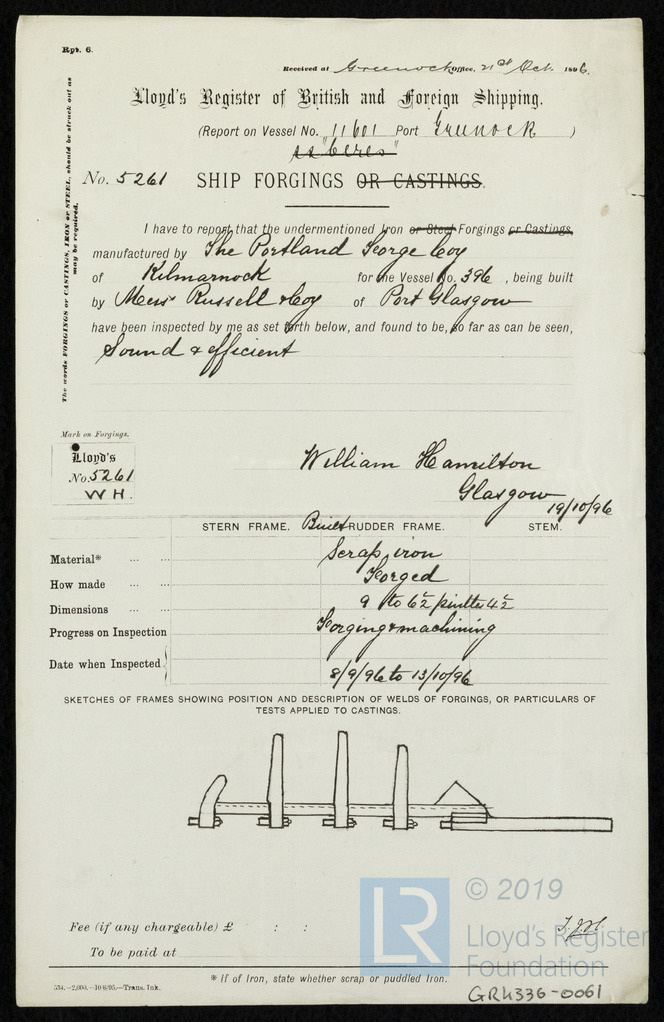 Rpt. 6.
Received at Greenock Office, 21st Oct. 1896.
Lloyd's Register of British and Foreign Shipping.
(Report on Vessel No. 11601 Port Greenock )
ss "Ceres"
No. 5261 SHIP FORGINGS OR CASTINGS.
The words FORGINGS or CASTINGS, IRON or STEEL, should be struck out as
may be required.
I have to report that the undermentioned Iron or Steel Forgings or Castings,
manufactured by The Portland Forge Coy
of Kilmarnock for the Vessel No. 396 , being built
by Messrs Russell & Coy of Port Glasgow
have been inspected by me as set forth below, and found to be, so far as can be seen,
Sound & efficient
Mark on Forgings.
Lloyd's
No. 5261
W H.
William Hamilton
Glasgow
19/10/96
STERN FRAME. Built RUDDER FRAME. STEM.
Material* ... ... Scrap iron
How made ... ... Forged
Dimensions ... ... 9 to 6½ pintles 4½
Progress on Inspection Forging & machining
Date when Inspected 8/9/96 to 13/10/96
SKETCHES OF FRAMES SHOWING POSITION AND DESCRIPTION OF WELDS OF FORGINGS, OR PARTICULARS OF
TESTS APPLIED TO CASTINGS.
LR
© 2019
Lloyd's Register
Foundation
Fee (if any chargeable) £ : :
To be paid at
* If of Iron, state whether scrap or puddled Iron.
534.—2,000.—10/6/95.—Trans. Ink.
GRK336-0061